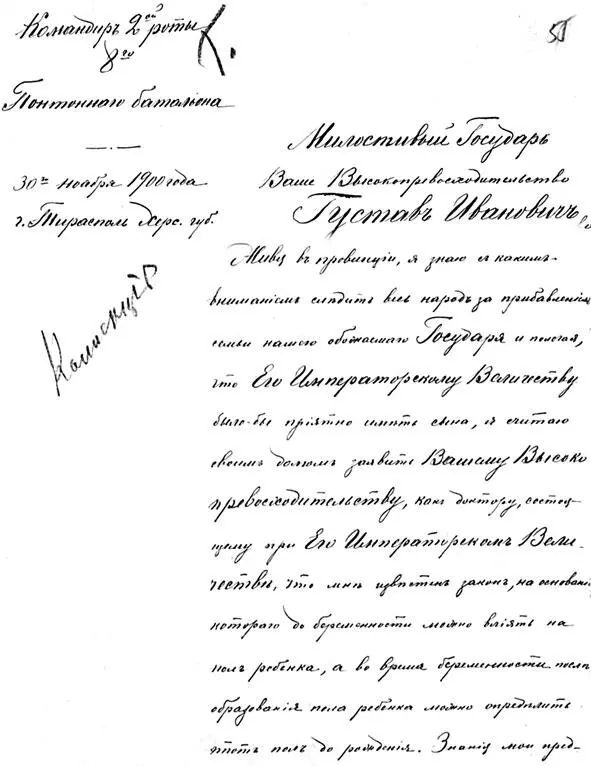 Командиръ 2ой роты
8го
Понтоннаго баталіона
30го ноября 1900 года
г. Тирасполь Херс. губ.
55
Милостивый Государь
Ваше Высокопревосходительство
Густавъ Ивановичъ
Живя въ провинціи, я знаю съ какимъ
вниманіемъ слѣдитъ весь народъ за прибавленіемъ
семьи нашего обожаемаго Государя и полагая,
что Его Императорскому Величеству
было-бы пріятно имѣть сына, я считаю
своимъ долгомъ заявить Вашему Высоко
превосходительству, какъ доктору, состоя-
щему при Его Императорскомъ Вели-
чествѣ, что мнѣ извѣстенъ законъ, на основаніи
котораго до беременности можно вліять на
полъ ребенка, а во время беременности послѣ
образованія пола ребенка можно опредѣлить
этотъ полъ до рожденія. Знанія мои пред-